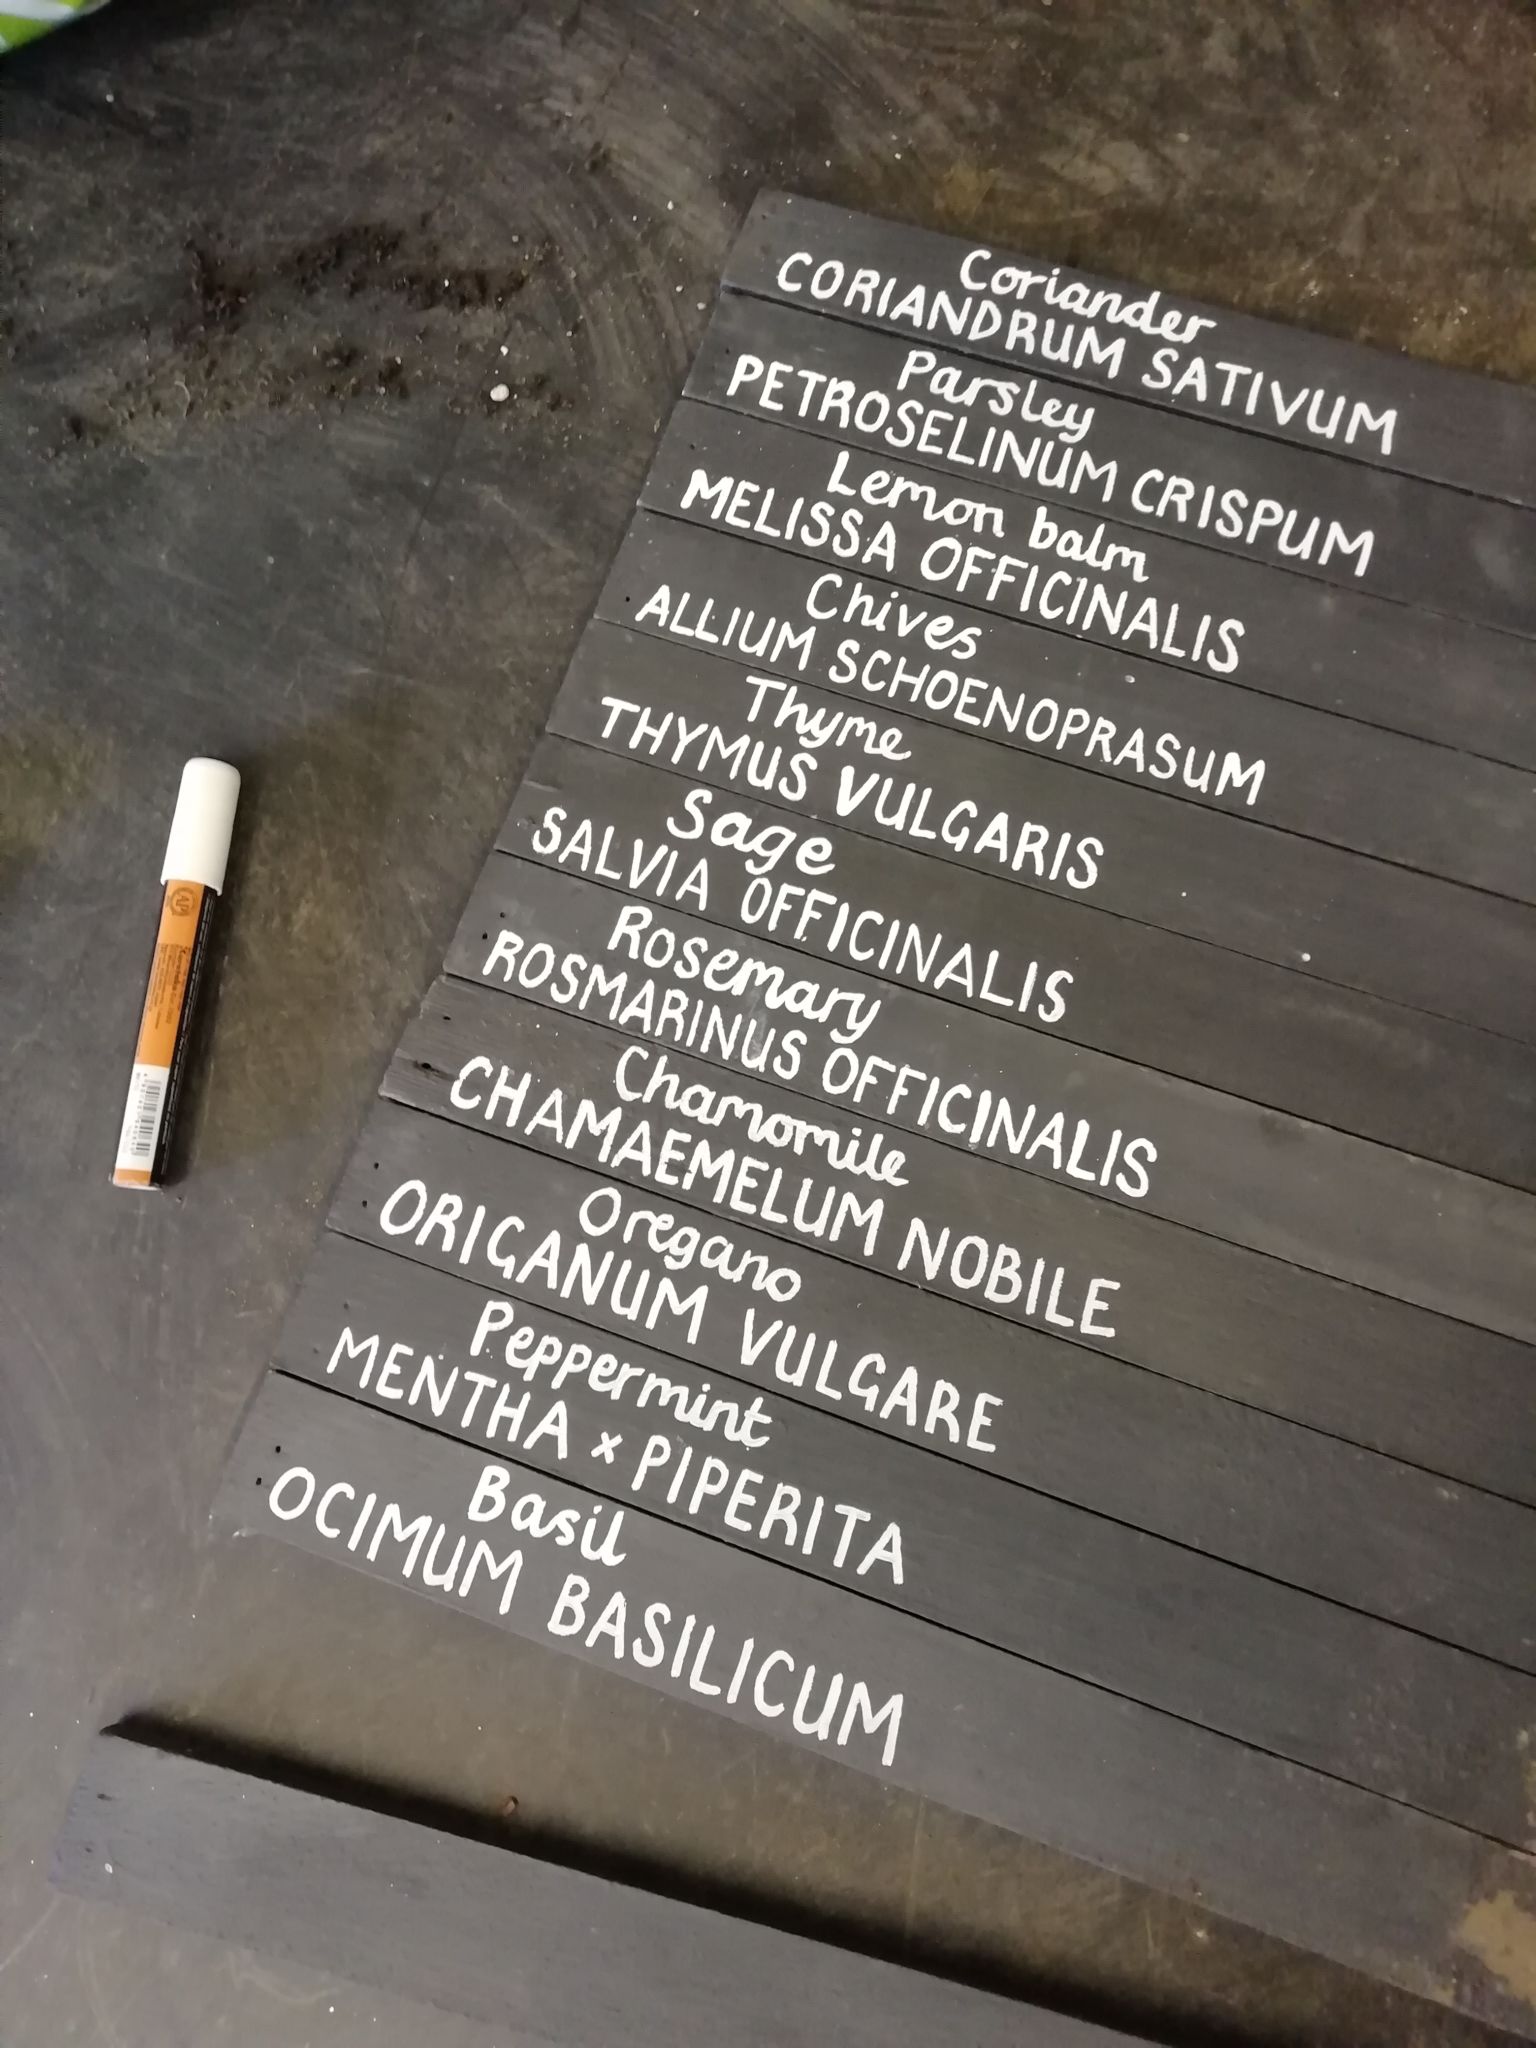 Coriander
CORIANDRUM SATIVUM
Parsley
PETROSELINUM CRISPUM
Lemon balm
MELISSA OFFICINALIS
Chives
ALLIUM SCHOENOPRASUM
Thyme
THYMUS VULGARIS
Sage
SALVIA OFFICINALIS
Rosemary
ROSMARINUS OFFICINALIS
Chamomile
CHAMAEMELUM NOBILE
Oregano
ORIGANUM VULGARE
Peppermint
MENTHA x PIPERITA
Basil
OCIMUM BASILICUM